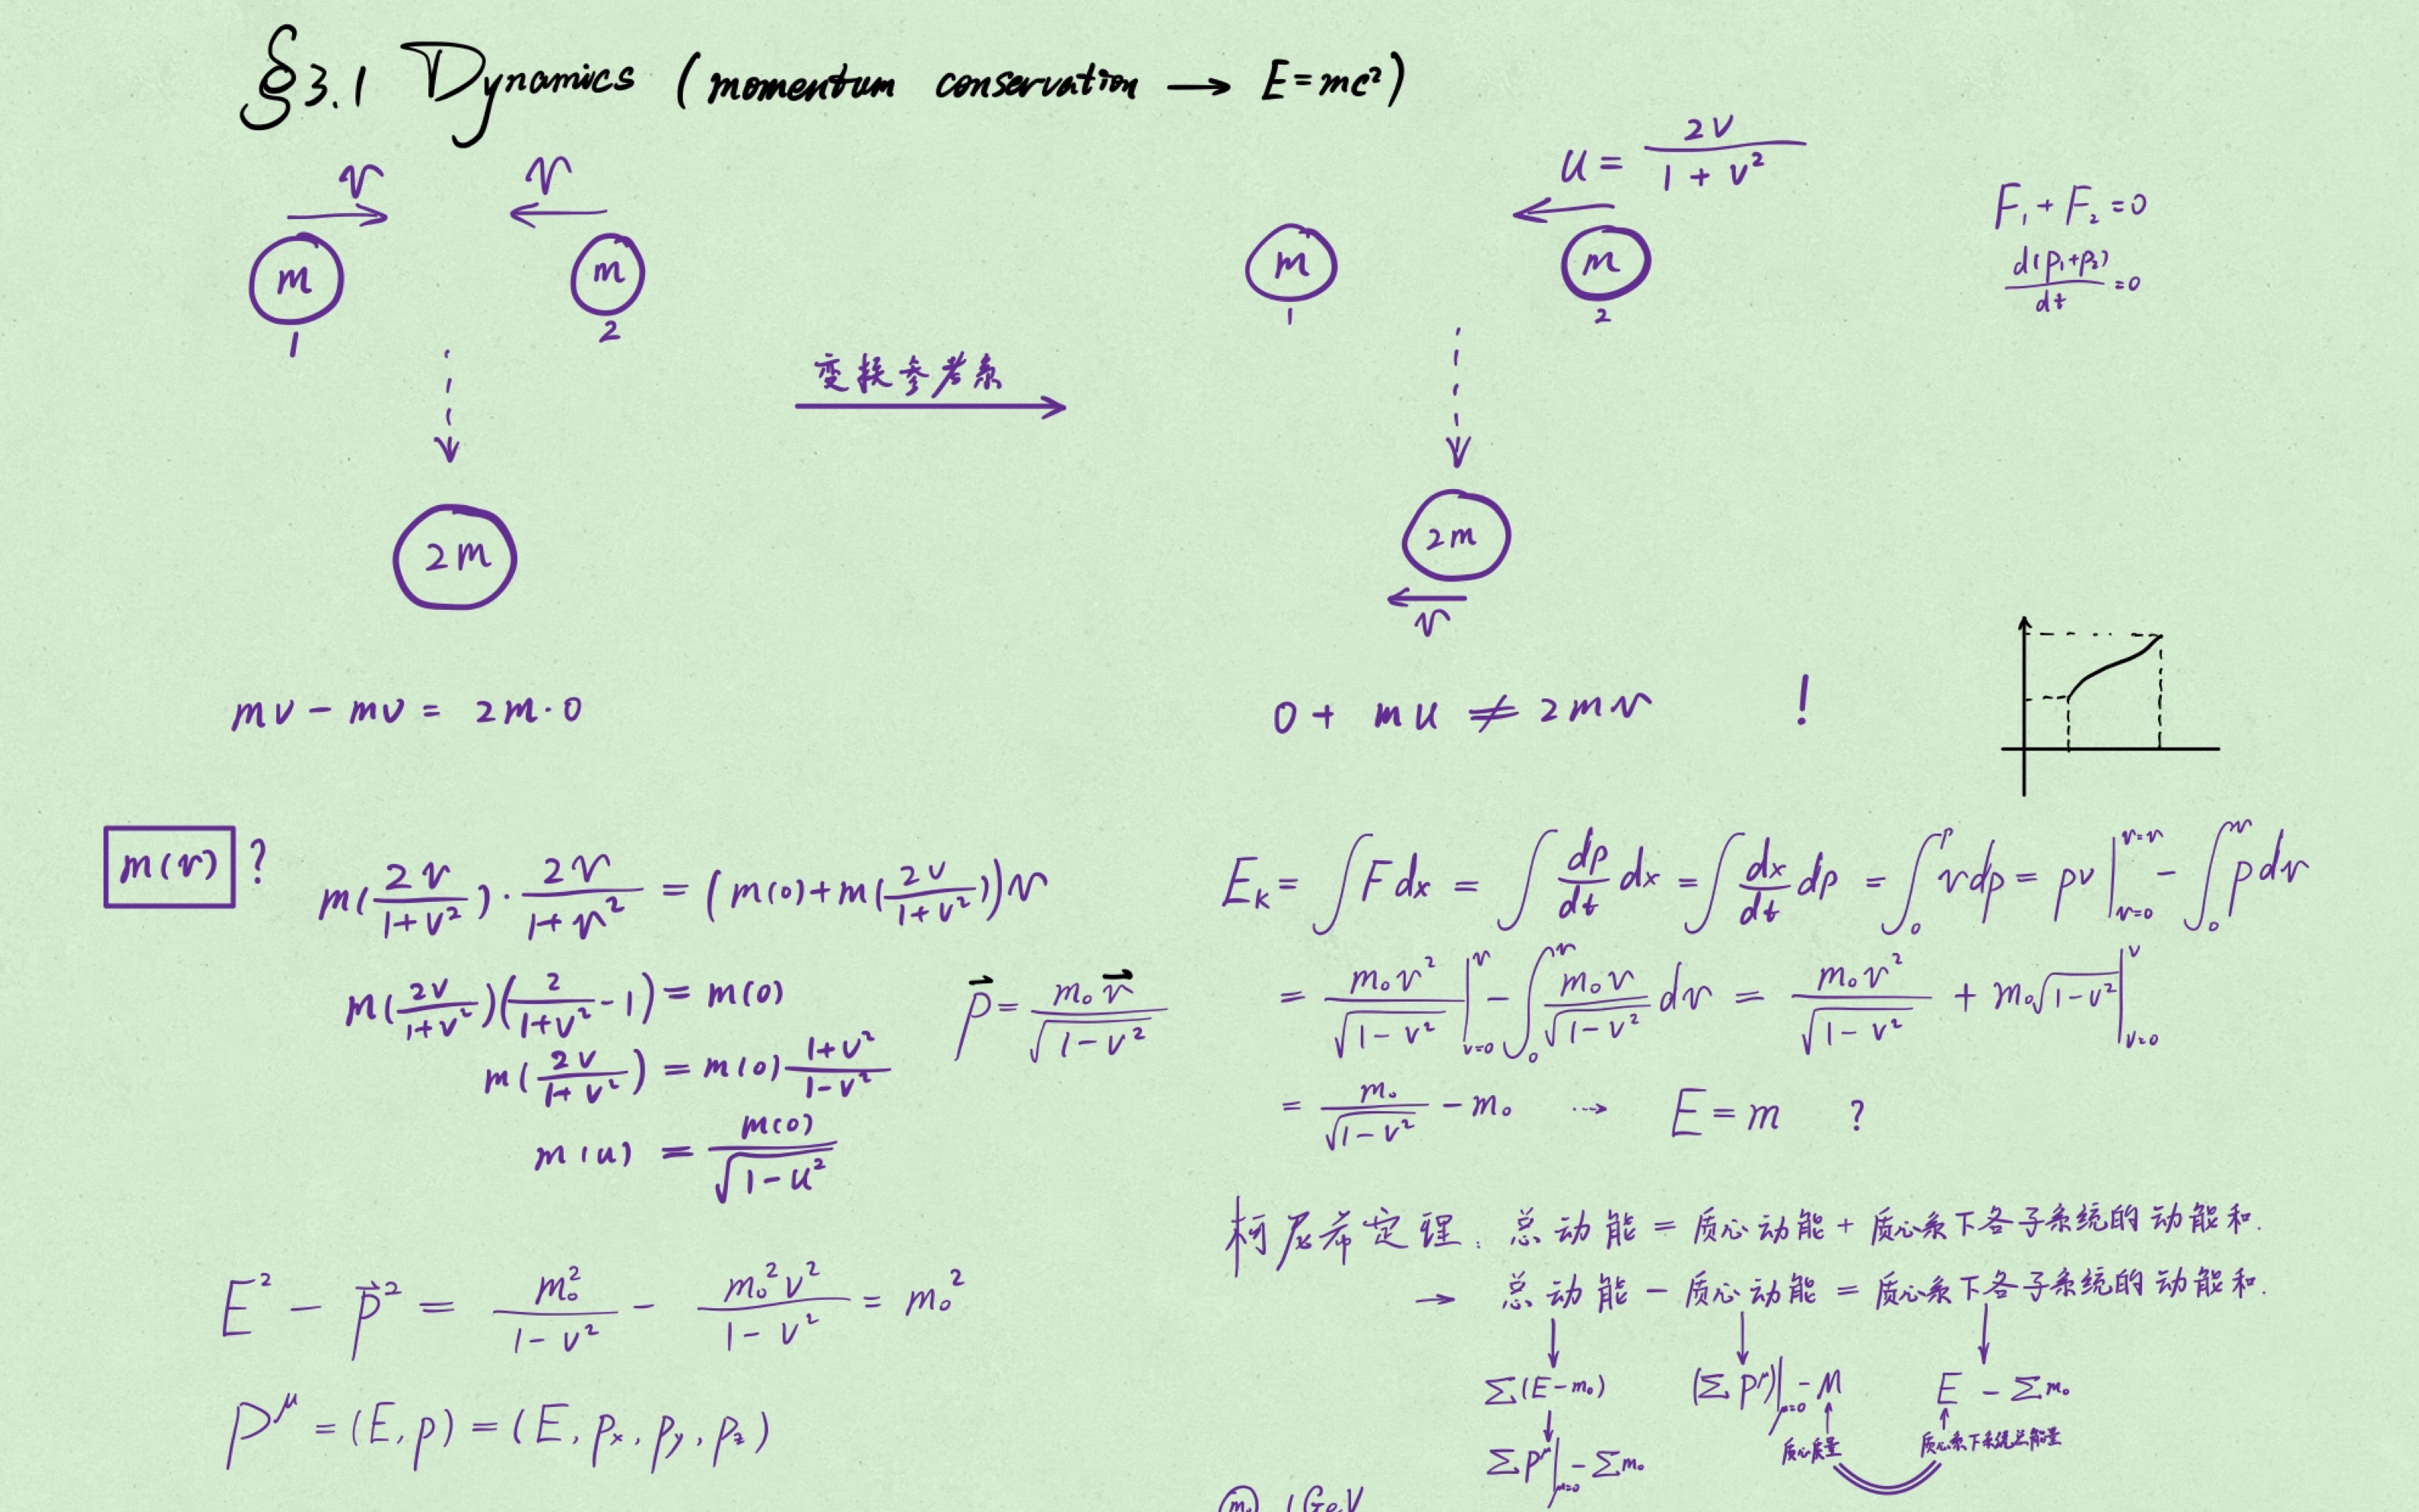 §3.1 Dynamics (momentum conservation → E=mc²)
v v
m m
1 2
2m
变换参考系
u = 2v/(1+v²)
m m
1 2
2m
v
F₁ + F₂ = 0
d(p₁+p₂)/dt = 0
mv - mv = 2m·0
0 + mu ≠ 2mv !
m(v) ?
m(2v/(1+v²)) · 2v/(1+v²) = (m(0)+m(2v/(1+v²)))v
m(2v/(1+v²))(2/(1+v²) - 1) = m(0)
m(2v/(1+v²)) = m(0) (1+v²)/(1-v²)
m(u) = m(0)/√(1-u²)
p⃗ = m₀v⃗/√(1-v²)
E² - p⃗² = m₀²/(1-v²) - m₀²v²/(1-v²) = m₀²
P^μ = (E, p) = (E, pₓ, p_y, p_z)
E_k = ∫F dx = ∫ dp/dt dx = ∫ dx/dt dp = ∫₀^p v dp = pv|_{v=0}^{v=v} - ∫₀^v p dv
= m₀v²/√(1-v²) |_{v=0}^v - ∫₀^v m₀v/√(1-v²) dv = m₀v²/√(1-v²) + m₀√(1-v²) |_{v=0}^v
= m₀/√(1-v²) - m₀ ⇢ E = m ?
柯尼希定理: 总动能 = 质心动能 + 质心系下各子系统的动能和.
→ 总动能 - 质心动能 = 质心系下各子系统的动能和.
Σ(E-m₀) (ΣP^μ)|_{μ=0} - M E - Σm₀
ΣP^μ|_{μ=0} - Σm₀ 质心质量 质心系下系统总能量
m₀ 1GeV